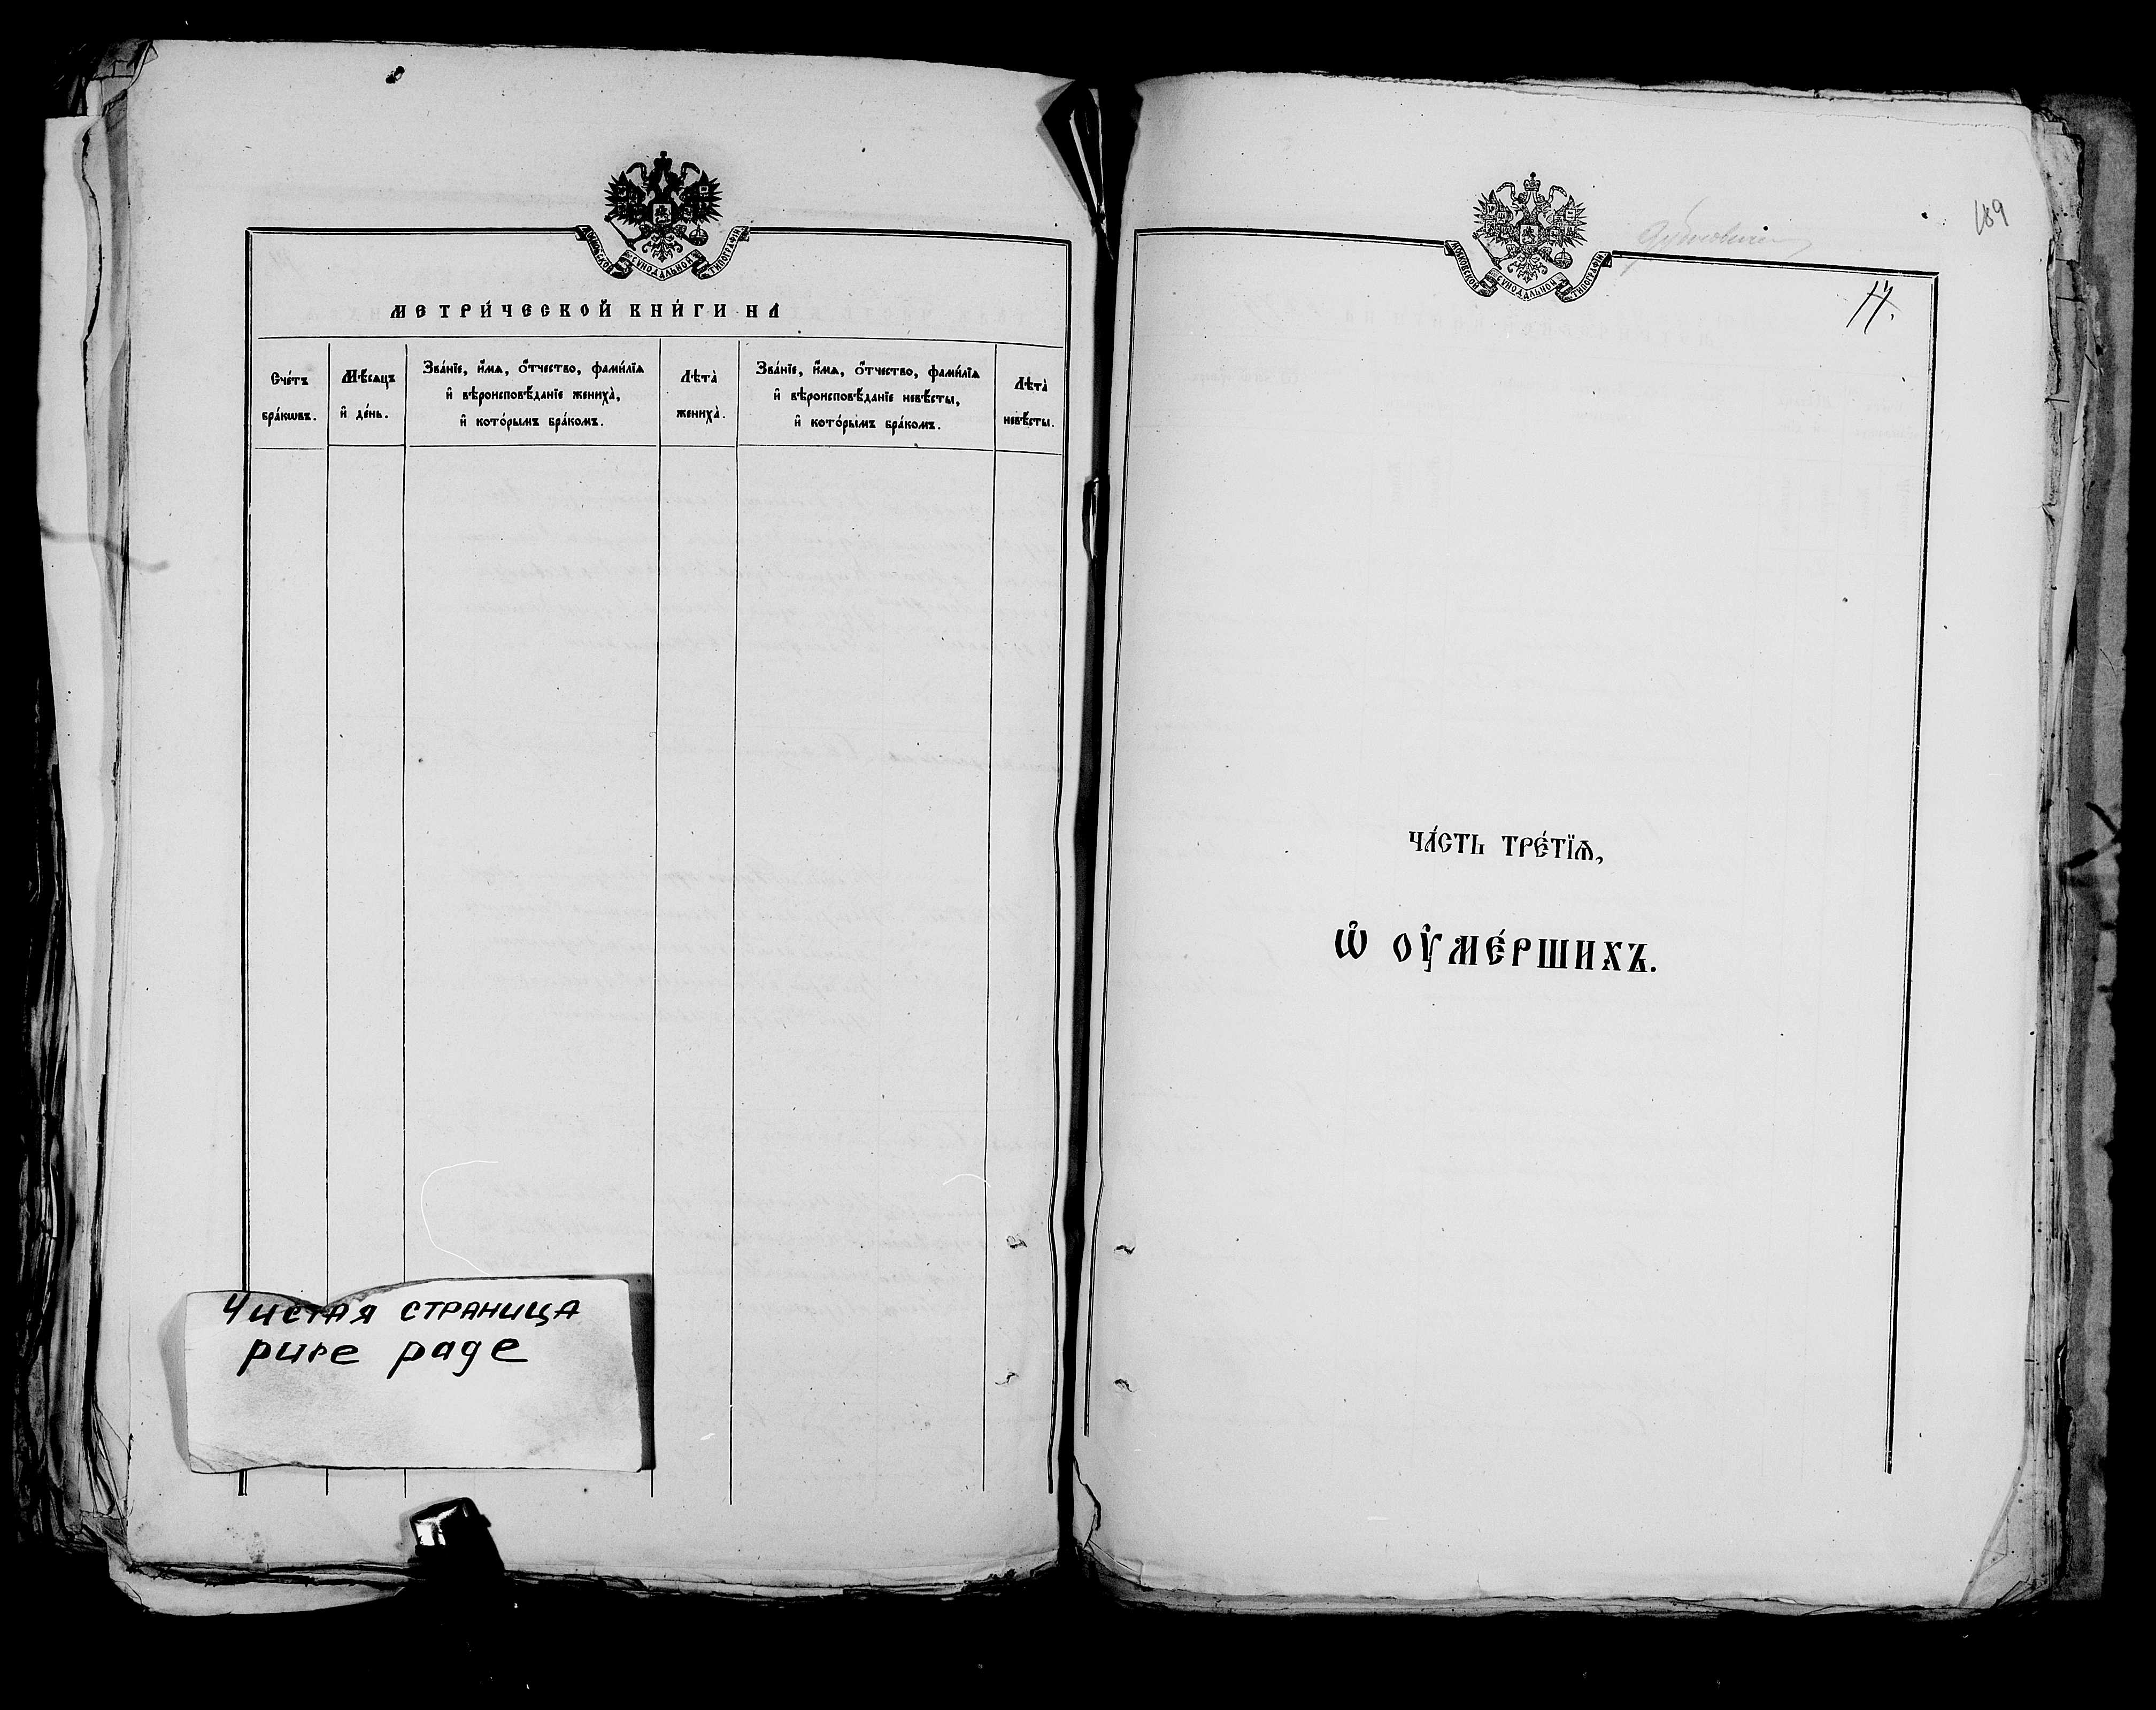 МОСКОВСКОЙ СѴНОДАЛЬНОЙ ТИПОГРАФІИ
МЕТРИ́ЧЕСКОЙ КНИ́ГИ НА̀
Сче́тъ
бра́кѡвъ.
Мѣ́сяцъ
и҆ де́нь.
Зва́нїе, и҆́мѧ, ѻ҆́тчество, фами́лїѧ
и҆ вѣроисповѣ́данїе жениха̀,
и҆ кото́рымъ бра́комъ.
Лѣта̀
жениха̀.
Зва́нїе, и҆́мѧ, ѻ҆́тчество, фами́лїѧ
и҆ вѣроисповѣ́данїе невѣ́сты,
и҆ кото́рымъ бра́комъ.
Лѣта̀
невѣ́сты.
Чистая страница
pure page
МОСКОВСКОЙ СѴНОДАЛЬНОЙ ТИПОГРАФІИ
189
ЧА́СТЬ ТРЕ́ТЇѦ,
Ѡ҆ ОУ҆МЕ́РШИХЪ.